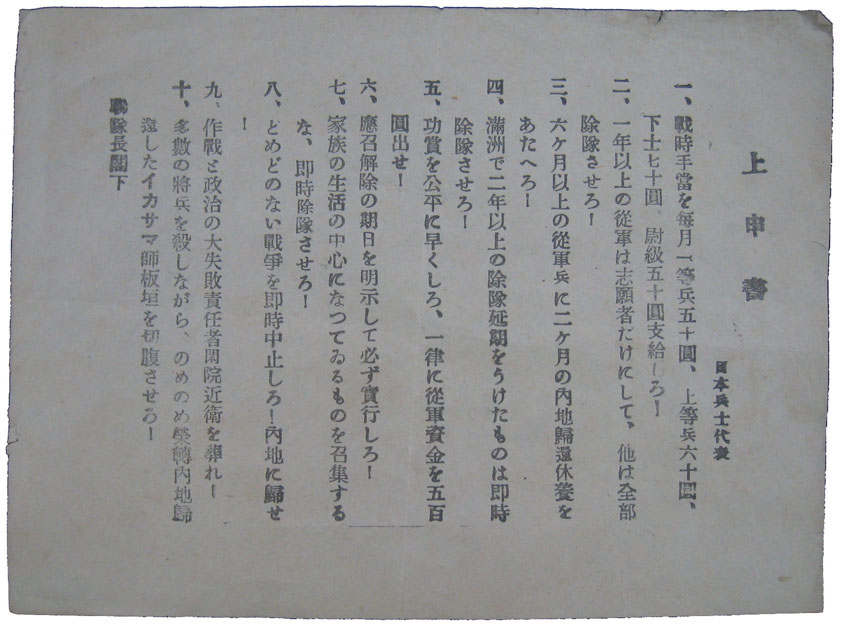 上申書
日本兵士代表
一、戰時手當を每月一等兵五十圓、上等兵六十圓、
下士七十圓、尉級五十圓支給しろ！
二、一年以上の從軍は志願者だけにして、他は全部
除隊させろ！
三、六ケ月以上の從軍兵に二ケ月の內地歸還休養を
あたへろ！
四、滿洲で二年以上の除隊延期をうけたものは卽時
除隊させろ！
五、功賞を公平に早くしろ、一律に從軍資金を五百
圓出せ！
六、應召解除の期日を明示して必ず實行しろ！
七、家族の生活の中心になつてゐるものを召集する
な、卽時除隊させろ！
八、どめどのない戰爭を卽時中止しろ！內地に歸せ
！
九、作戰と政治の大失敗責任者閑院近衞を葬れ！
十、多數の將兵を殺しながら、のめのめ榮轉內地歸
還したイカサマ師板垣を切腹させろ！
聯隊長閣下